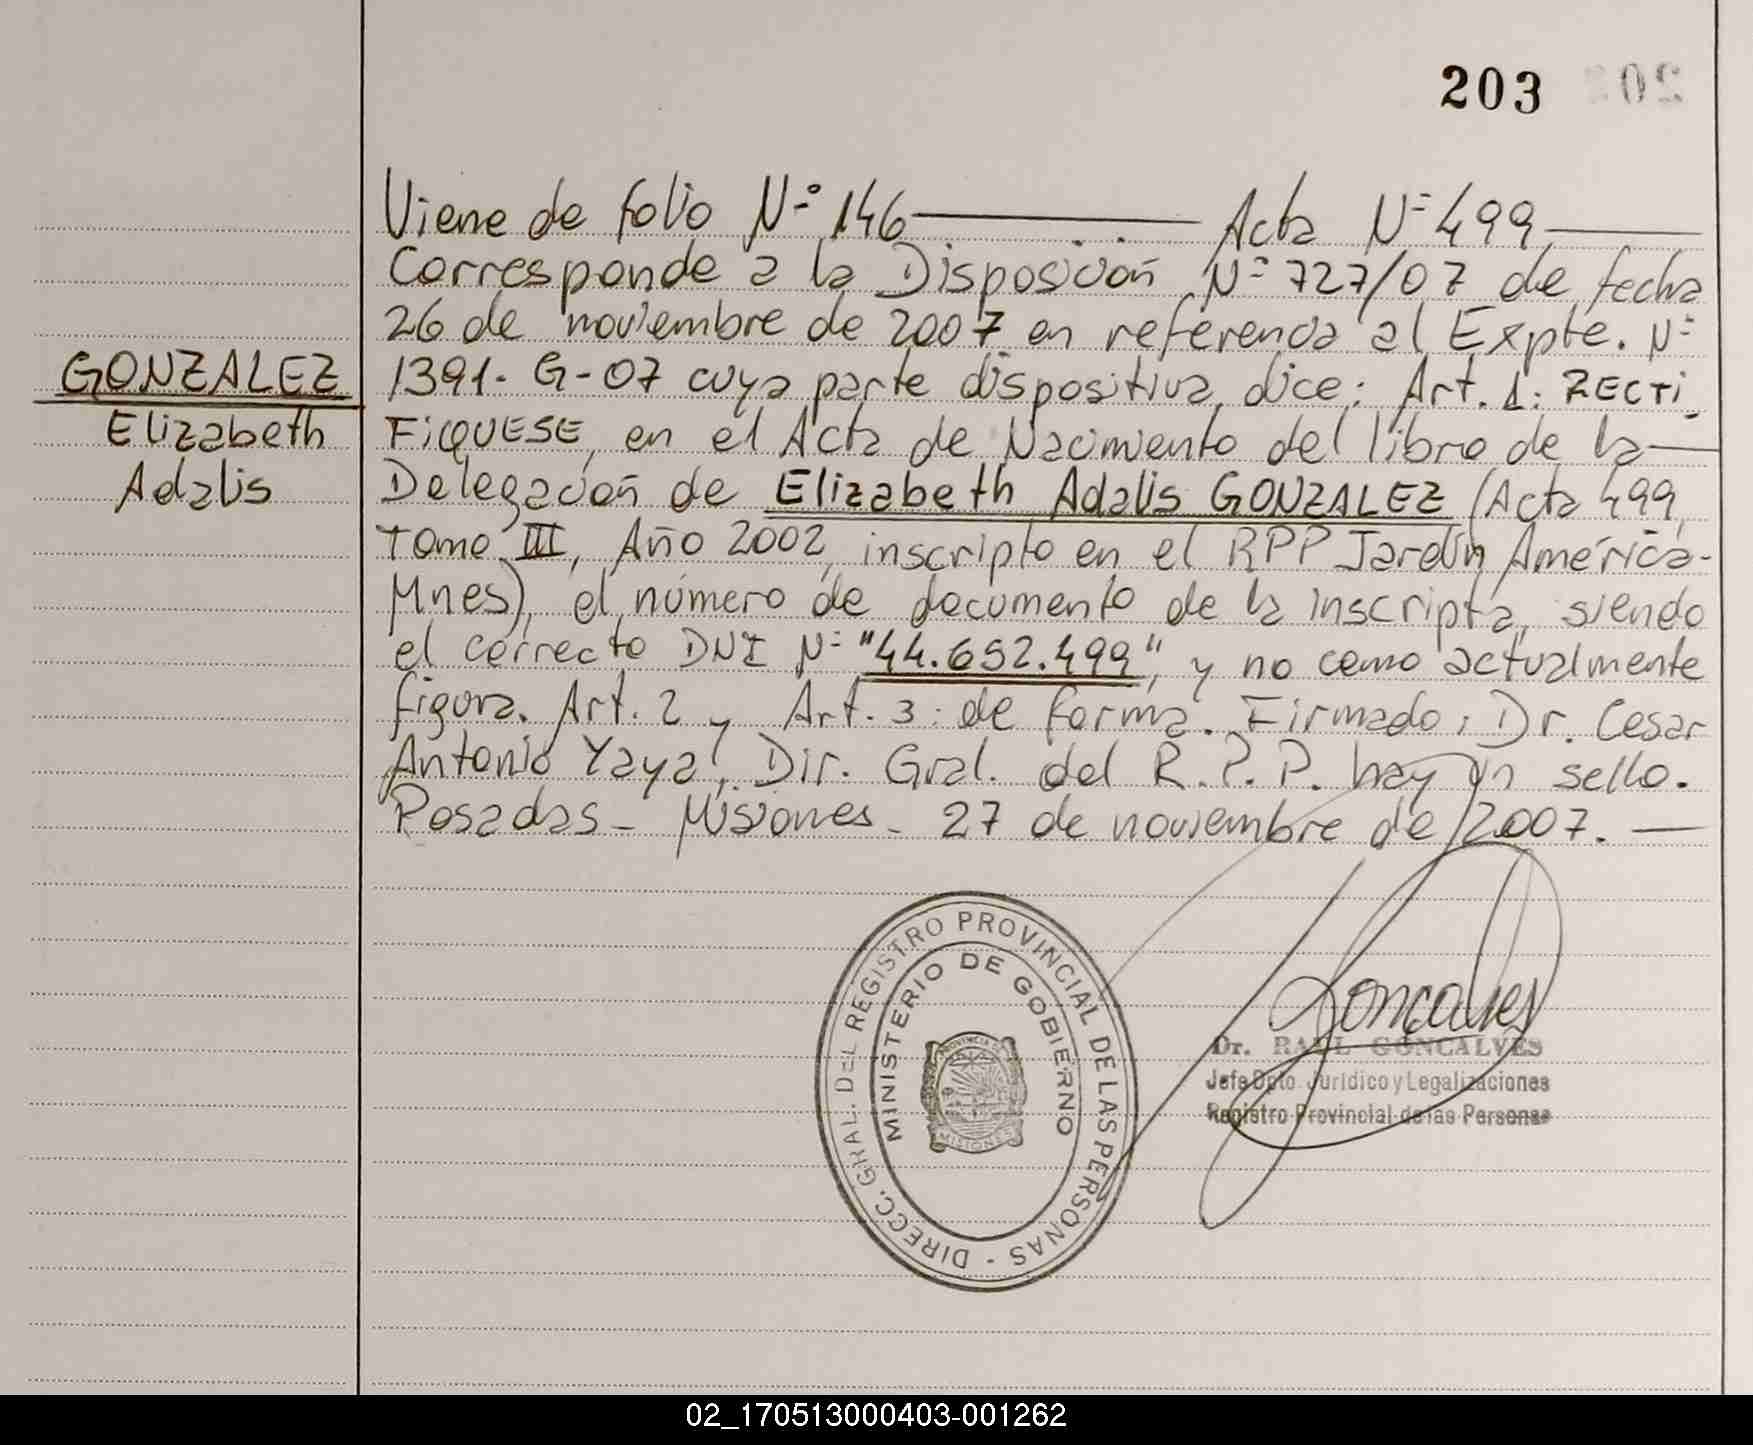 203
Viene de folio N° 146 —— Acta N= 499, ——
Corresponde a la Disposición N= 727/07 de fecha
26 de noviembre de 2007 en referencia al Expte. N=
GONZALEZ
Elizabeth
Adalis
1391- G-07 cuya parte dispositiva dice: Art. 1: RECTI
FIQUESE, en el Acta de Nacimiento del libro de la —
Delegación de Elizabeth Adalis GONZALEZ (Acta 499,
Tomo III, Año 2002, inscripto en el RPP Jardín América-
Mnes), el número de documento de la inscripta, siendo
el correcto DNI N= "44.652.499", y no como actualmente
figura. Art. 2 y Art. 3: de forma. Firmado: Dr. Cesar
Antonio Yaya, Dir. Gral. del R.P.P. hay un sello.
Posadas - Misiones - 27 de noviembre de 2007. —
DIRECC. GRAL. DEL REGISTRO PROVINCIAL DE LAS PERSONAS -
MINISTERIO DE GOBIERNO
PROVINCIA DE
MISIONES
Goncalves
Dr. RAUL GONCALVES
Jefe Dpto. Jurídico y Legalizaciones
Registro Provincial de las Personas
02_170513000403-001262